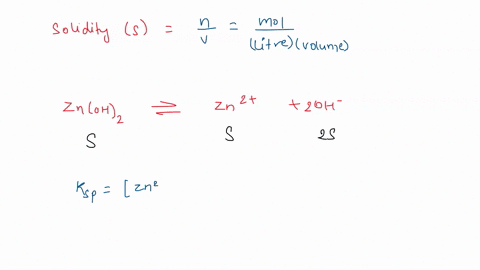 Solidity (S) = n/v = mol/(litre)(volume)
Zn(OH)2 ⇌ Zn2+ + 2OH-
S S 2S
Ksp = [Zn2